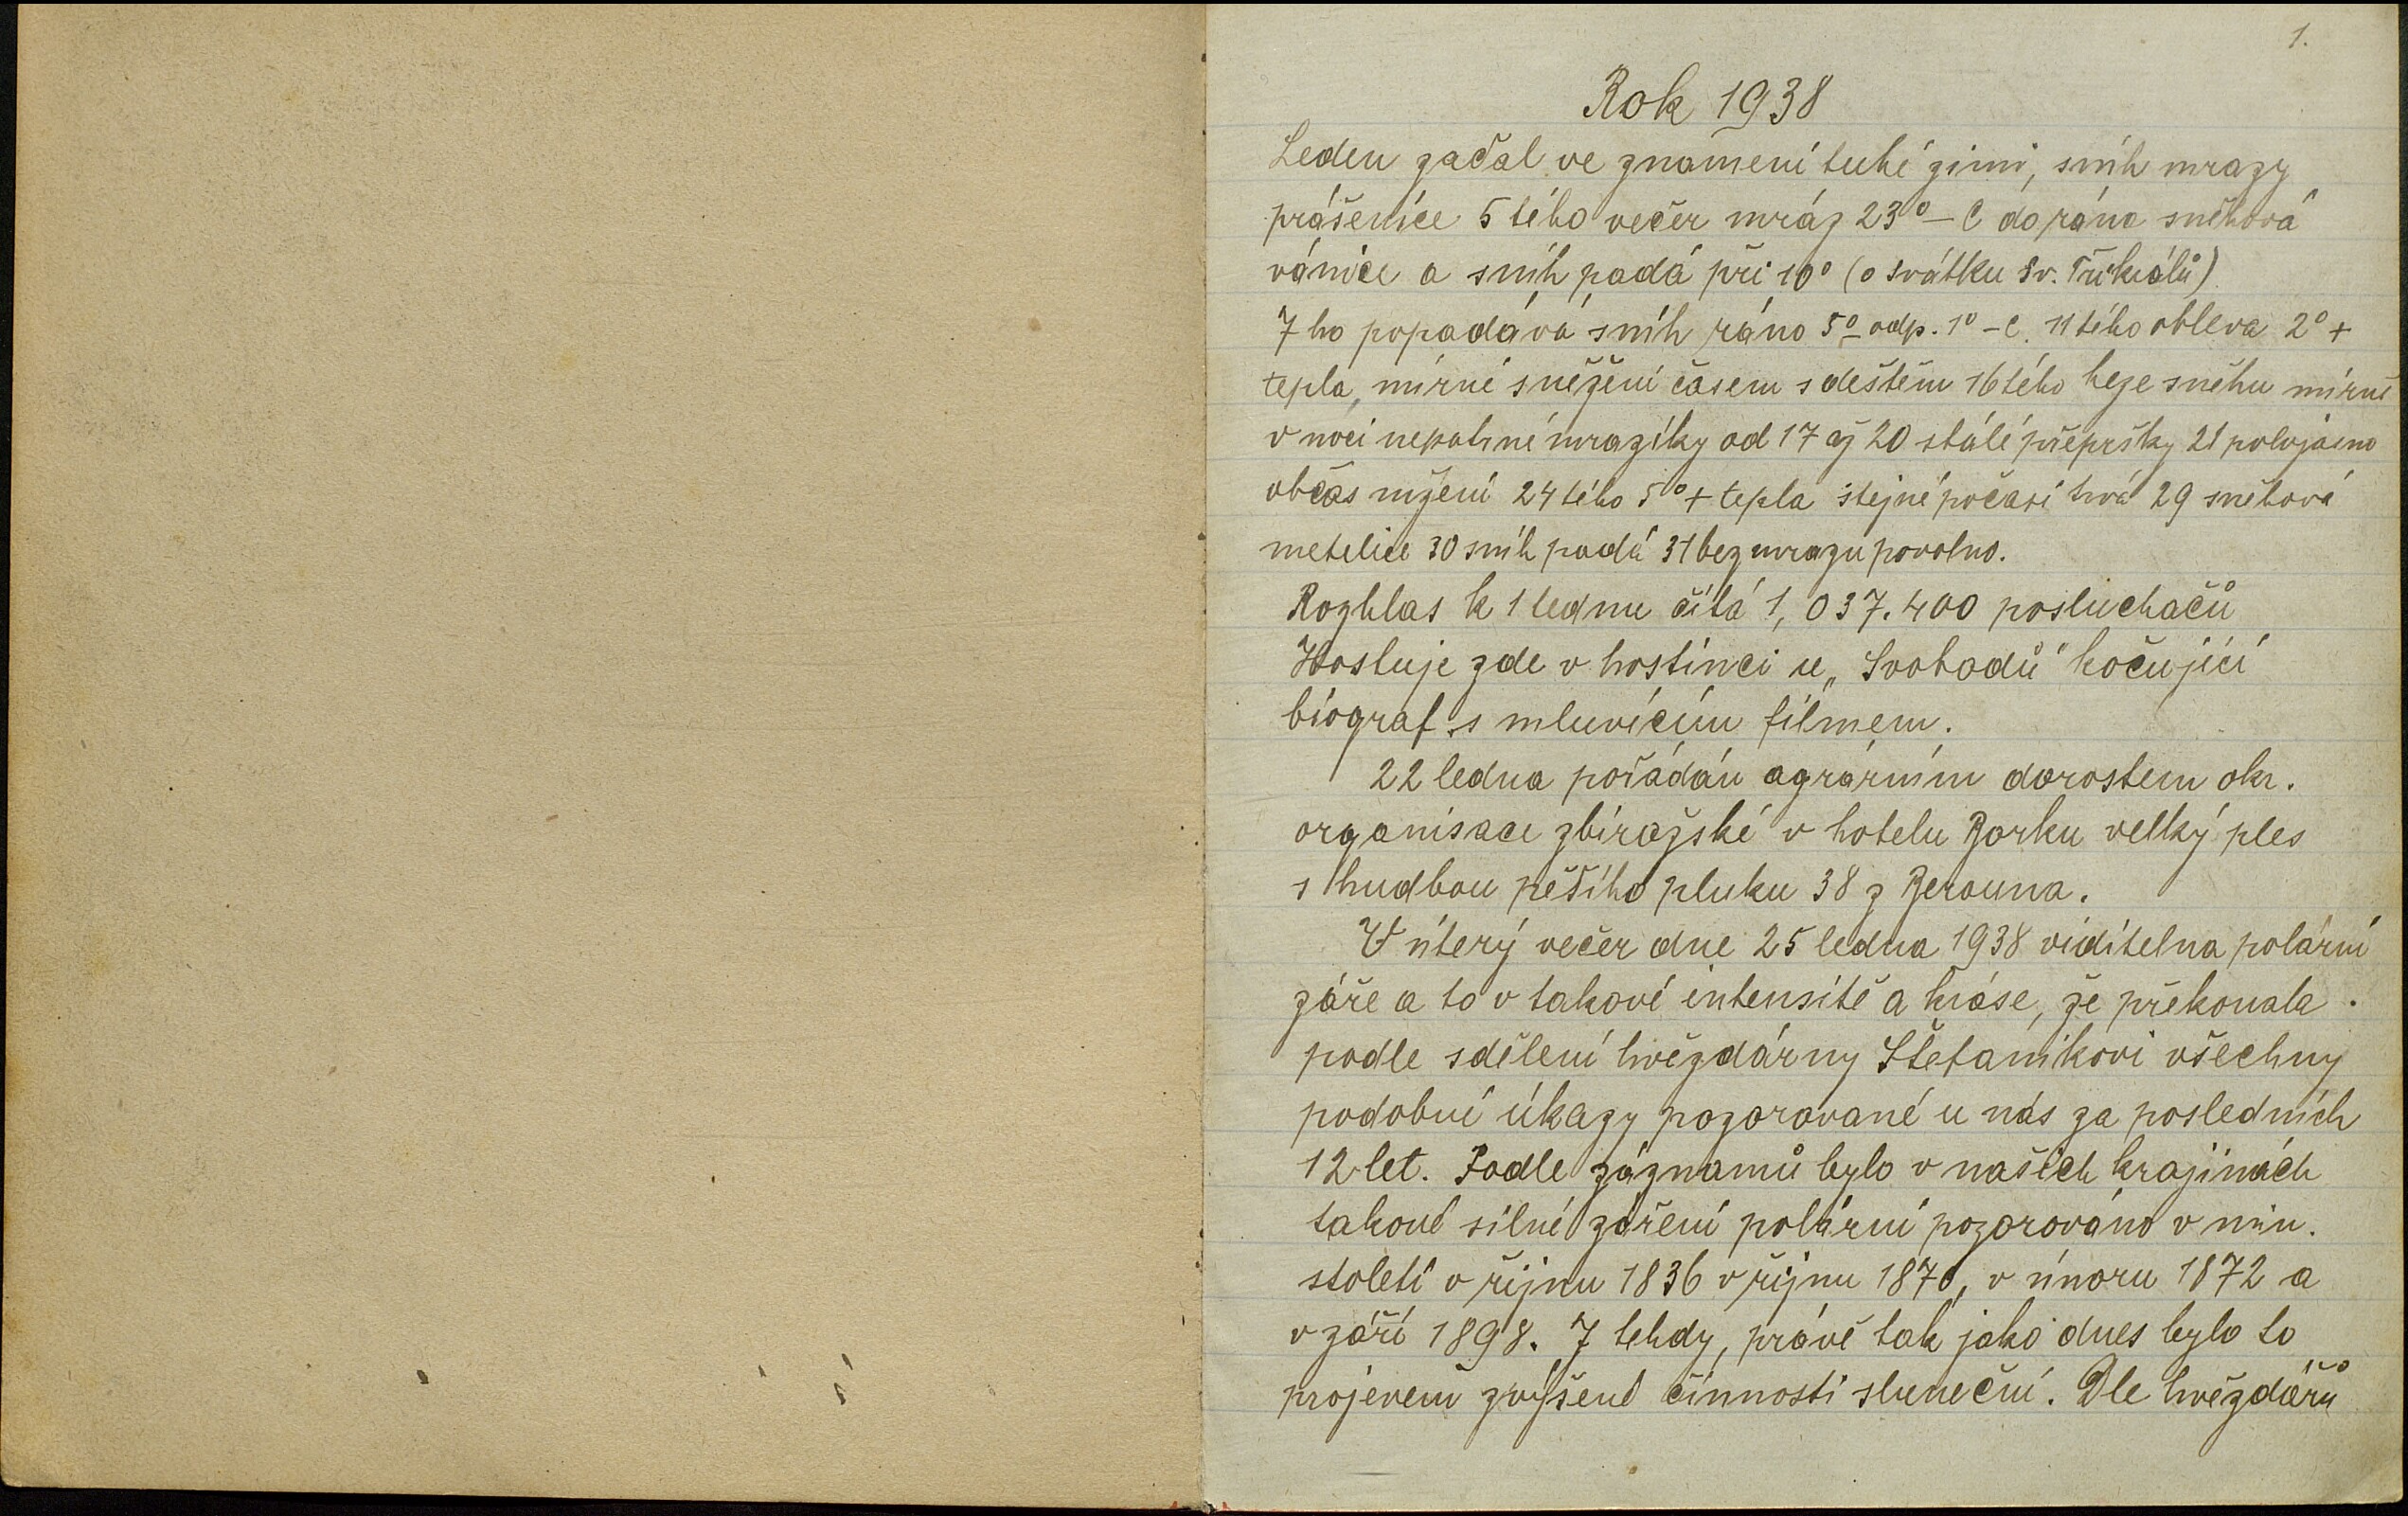 1.
Rok 1938
Leden začal ve znamení tuhé zimi, sníh mrazy
prášenice 5 tého večer mráz 23° – C do rána sněhová
vánice a sníh padá při 10° (o svátku Sv. Tříkrálů)
7 ho popadává sníh ráno 5° – odp. 1° – C. 11 tého obleva 2° +
tepla, mírné sněžení časem s deštěm 16 tého beze sněhu mírné
v noci nepatrné mrazíky od 17 až 20 stálé přepršky 21 polojasno
občas mžení 24 tého 5° + tepla stejné počasí trvá 29 sněhová
metelice 30 sníh padá 31 bez mrazu povolno.
Rozhlas k 1 lednu čítá 1,037.400 posluchačů
Hostuje zde v hostinci u „Svobodů" kočující
biograf s mluvícím filmem.
22 ledna pořádán agrárním dorostem okr.
organisace zbirožské v hotelu Borku velký ples
s hudbou pěšího pluku 38 z Berouna.
V úterý večer dne 25 ledna 1938 viditelna polární
záře a to v takové intensitě a kráse, že překonala
podle sdělení hvězdárny Štefanikovi všechny
podobné úkazy pozorované u nás za posledních
12 let. Podle záznamů bylo v našich krajinách
takové silné záření polární pozorováno v min.
století v říjnu 1836 v říjnu 1870, v únoru 1872 a
v září 1898. I tehdy, právě tak jako dnes bylo to
projevem zvýšené činnosti sluneční. Dle hvězdářů